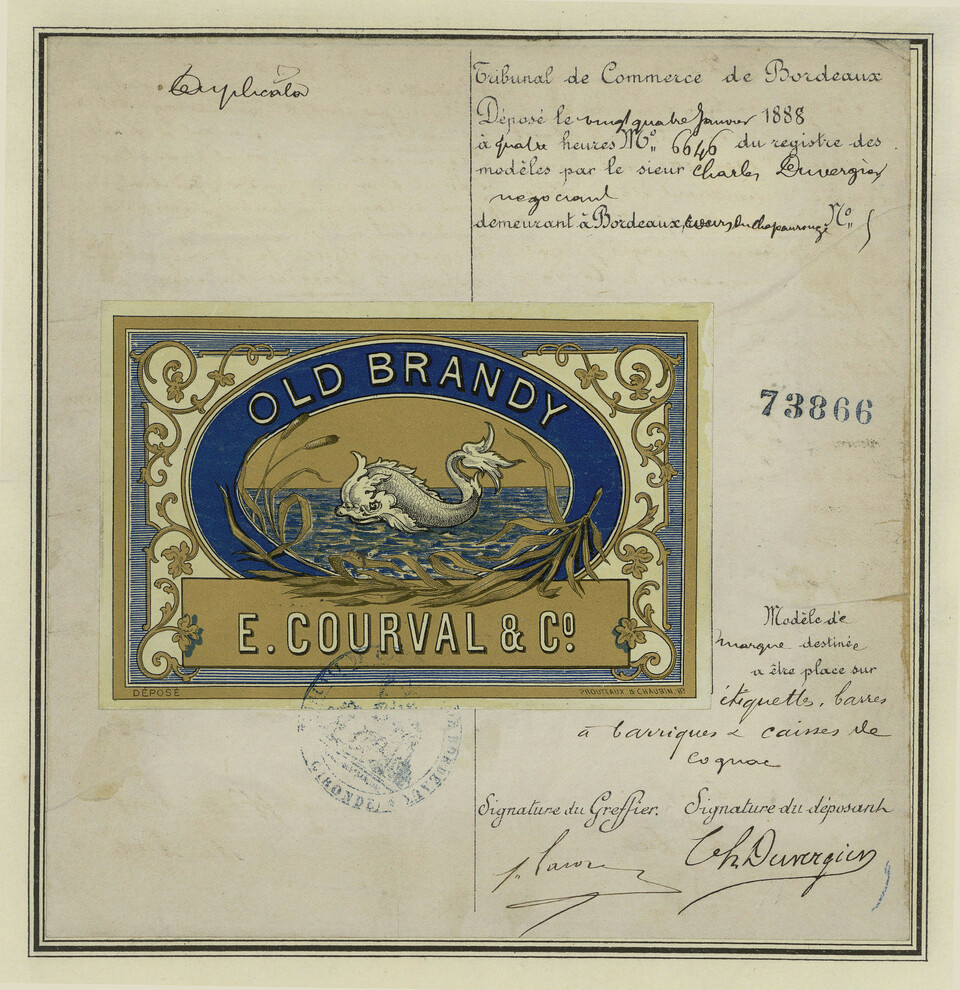 Duplicata
Tribunal de Commerce de Bordeaux
Déposé le vingt quatre Janvier 1888
à quatre heures Nº 6646 du registre des
modèles par le sieur Charles Duvergier
négociant
demeurant à Bordeaux, cours du chapeau rouge Nº 5
OLD BRANDY
E. COURVAL & Cº
DÉPOSÉ
PROUTEAUX & CHAUBIN, BX
73866
Modèle de
marque destinée
a être place sur
étiquettes, barres
à barriques & caisses de
cognac
Signature du Greffier. Signature du déposant
Ch Duvergier
BORDEAUX
(GIRONDE)